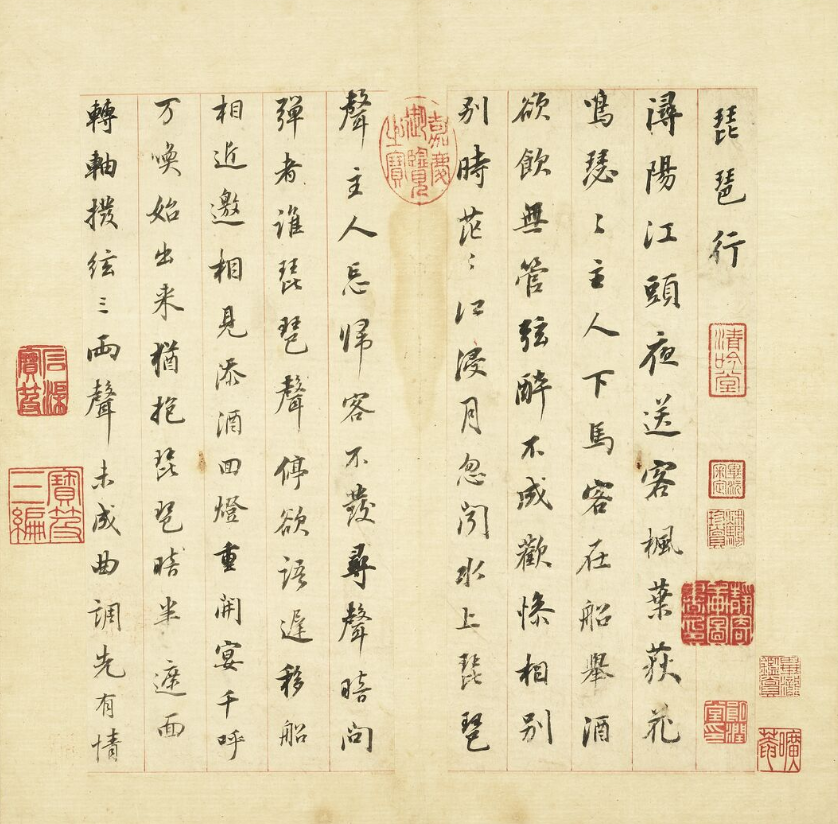 琵琶行
清吟堂
潯陽江頭夜送客楓葉荻花
鳴瑟〻主人下馬客在船舉酒
欲飲無管弦醉不成歡慘相別
別時茫〻江浸月忽聞水上琵琶
嘉慶御覽之寶
聲主人忘歸客不發尋聲暗問
彈者誰琵琶聲停欲語遲移船
相近邀相見添酒回燈重開宴千呼
万喚始出来猶抱琵琶暗半遮面
轉軸撥絃三兩聲未成曲調先有情
石渠寶笈
寶笈三編